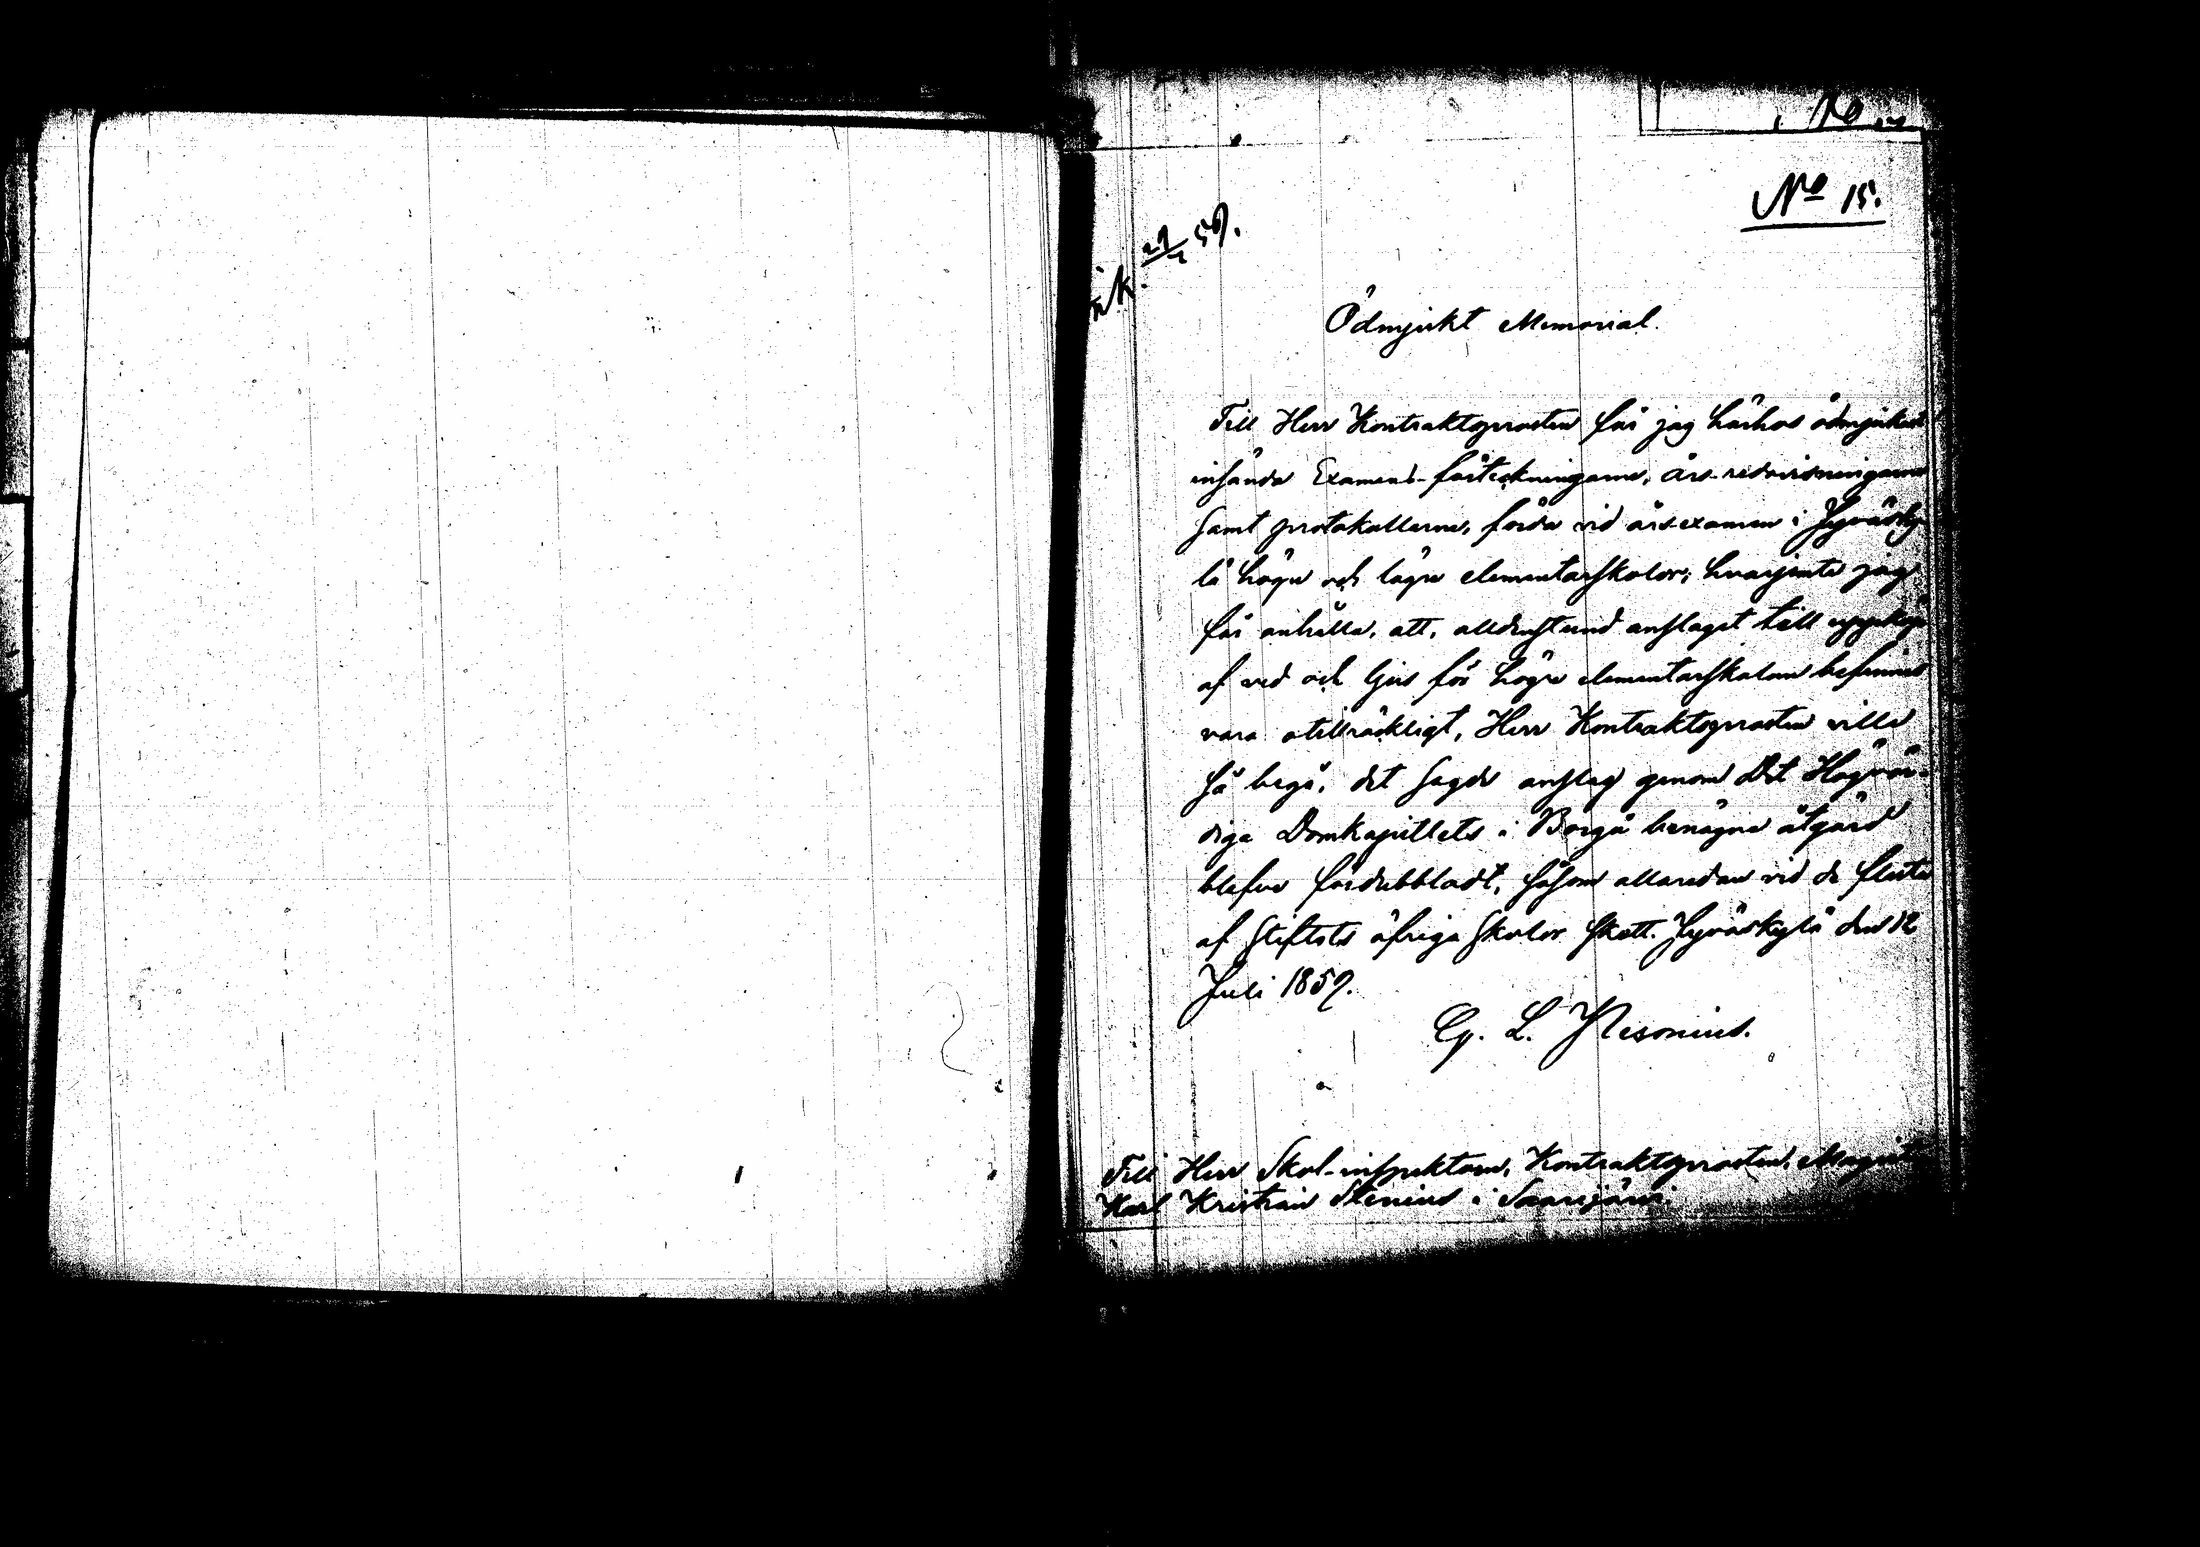 No 15.
Ödmjukt Memorial.
Till Herr Kontraktsprosten får jag härhos ödmjukast
insända Examens-förteckningarne, års-redovisningarne
samt protokollerne, förda vid års-examen i Jyväsky-
lä högre och lägre elementarskolor; hvarjemte jag
får anhålla, att, alldenstund anslaget till uppköp
af ved och ljus för högre elementarskolan befinnes
vara otillräckligt, Herr Kontraktsprosten ville
så begå, det sagde anslag genom Det Högvör-
diga Domkapitlets i Borgå benägna åtgärd
blefve fördubbladt, såsom allaredan vid de flesta
af stiftets öfriga skolor skett. Jyväskylä den 12
Juli 1859.
G. L.
Till Herr Skol-inspektorn, Kontraktsprosten, Magist
Karl Kristian Stenius i Saarijärvi.